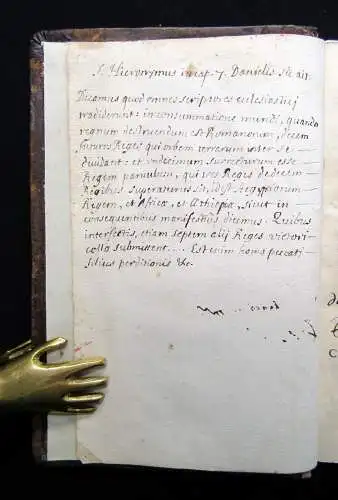 S. Hieronymus in cap. 7. Danielis sic ait.
Dicamus quod omnes scriptores eclesiastici
tradiderunt: in consummatione mundi, quando
regnum destruendum est Romanorum, decem
futuros Reges qui orbem terrarum inter se
dividant: et undecimum surrecturum esse
Regem parvulum, qui tres Reges de decem
Regibus superaturus sit, id est Aegyptiorum
Regem, et Africæ, et Æthiopiæ, sicut in
consequentibus manifestius dicemus. Quibus
interfectis, etiam septem alij Reges victori
colla submittent.... Est enim homo peccati
filius perditionis &c.